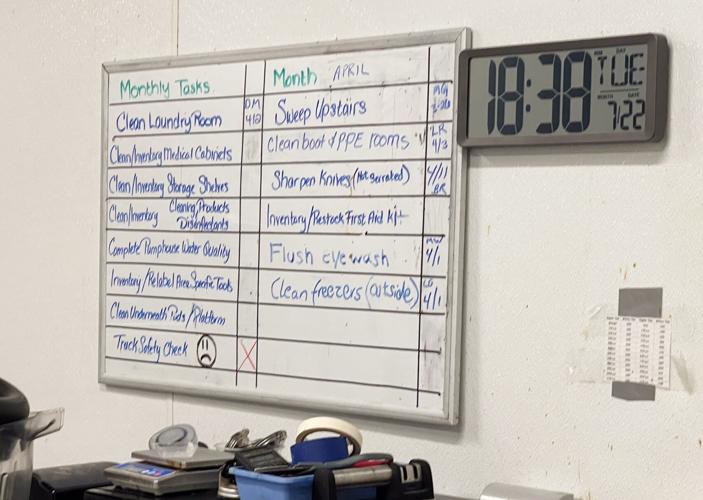 Monthly Tasks
Clean Laundry Room
DM
Clean/Inventory Medical Cabinets
Clean/Inventory Storage Shelves
Clean/Inventory Cleaning Products
Disinfectants
Complete Pumphouse Water Quality
Inventory/Relabel Area Specific Tools
Clean Underneath Pods/Platform
Truck Safety Check
X
Month APRIL
Sweep Upstairs
MG
Clean boot & PPE rooms
LR
4/3
Sharpen Knives (Not Serrated)
4/11
BR
Inventory/Restock First Aid Kit
Flush eyewash
MW
4/1
Clean freezers (outside)
4/1
18:38
DAY
TUE
MONTH DATE
7/22